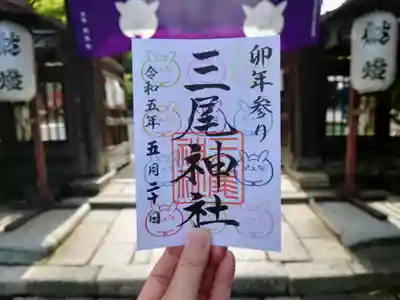 卯年参り
三尾神社
令和五年
五月二十日
献燈